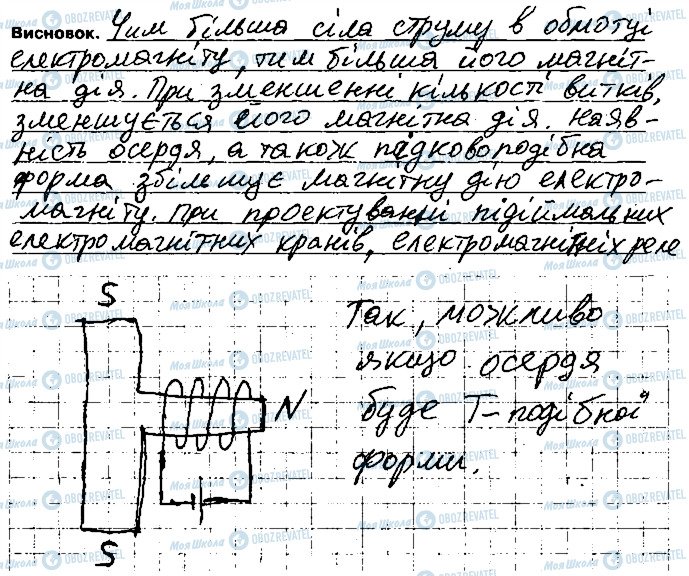 Висновок. Чим більша сила струму в обмотці
електромагніту, тим більша його магніт-
на дія. При зменшенні кількості витків,
зменшується його магнітна дія. Наяв-
ність осердя, а також підковоподібна
форма збільшує магнітну дію електро-
магніту. При проектуванні підіймальних
електромагнітних кранів, електромагнітніх реле
S
Так, можливо
якщо осердя
N
буде Т-подібної
форми.
S